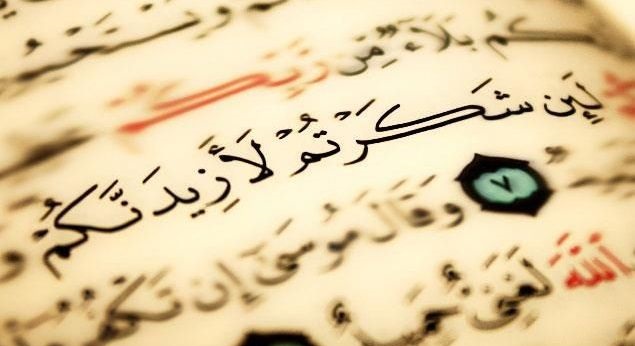 كُم بَلَآءٌ مِّن رَّبِّكُمْ
لَئِن شَكَرْتُمْ لَأَزِيدَنَّكُمْ
٧ وَقَالَ مُوسَىٰٓ إِن تَكْفُرُوٓا۟
ٱللَّهَ لَغَنِىٌّ حَمِيدٌ